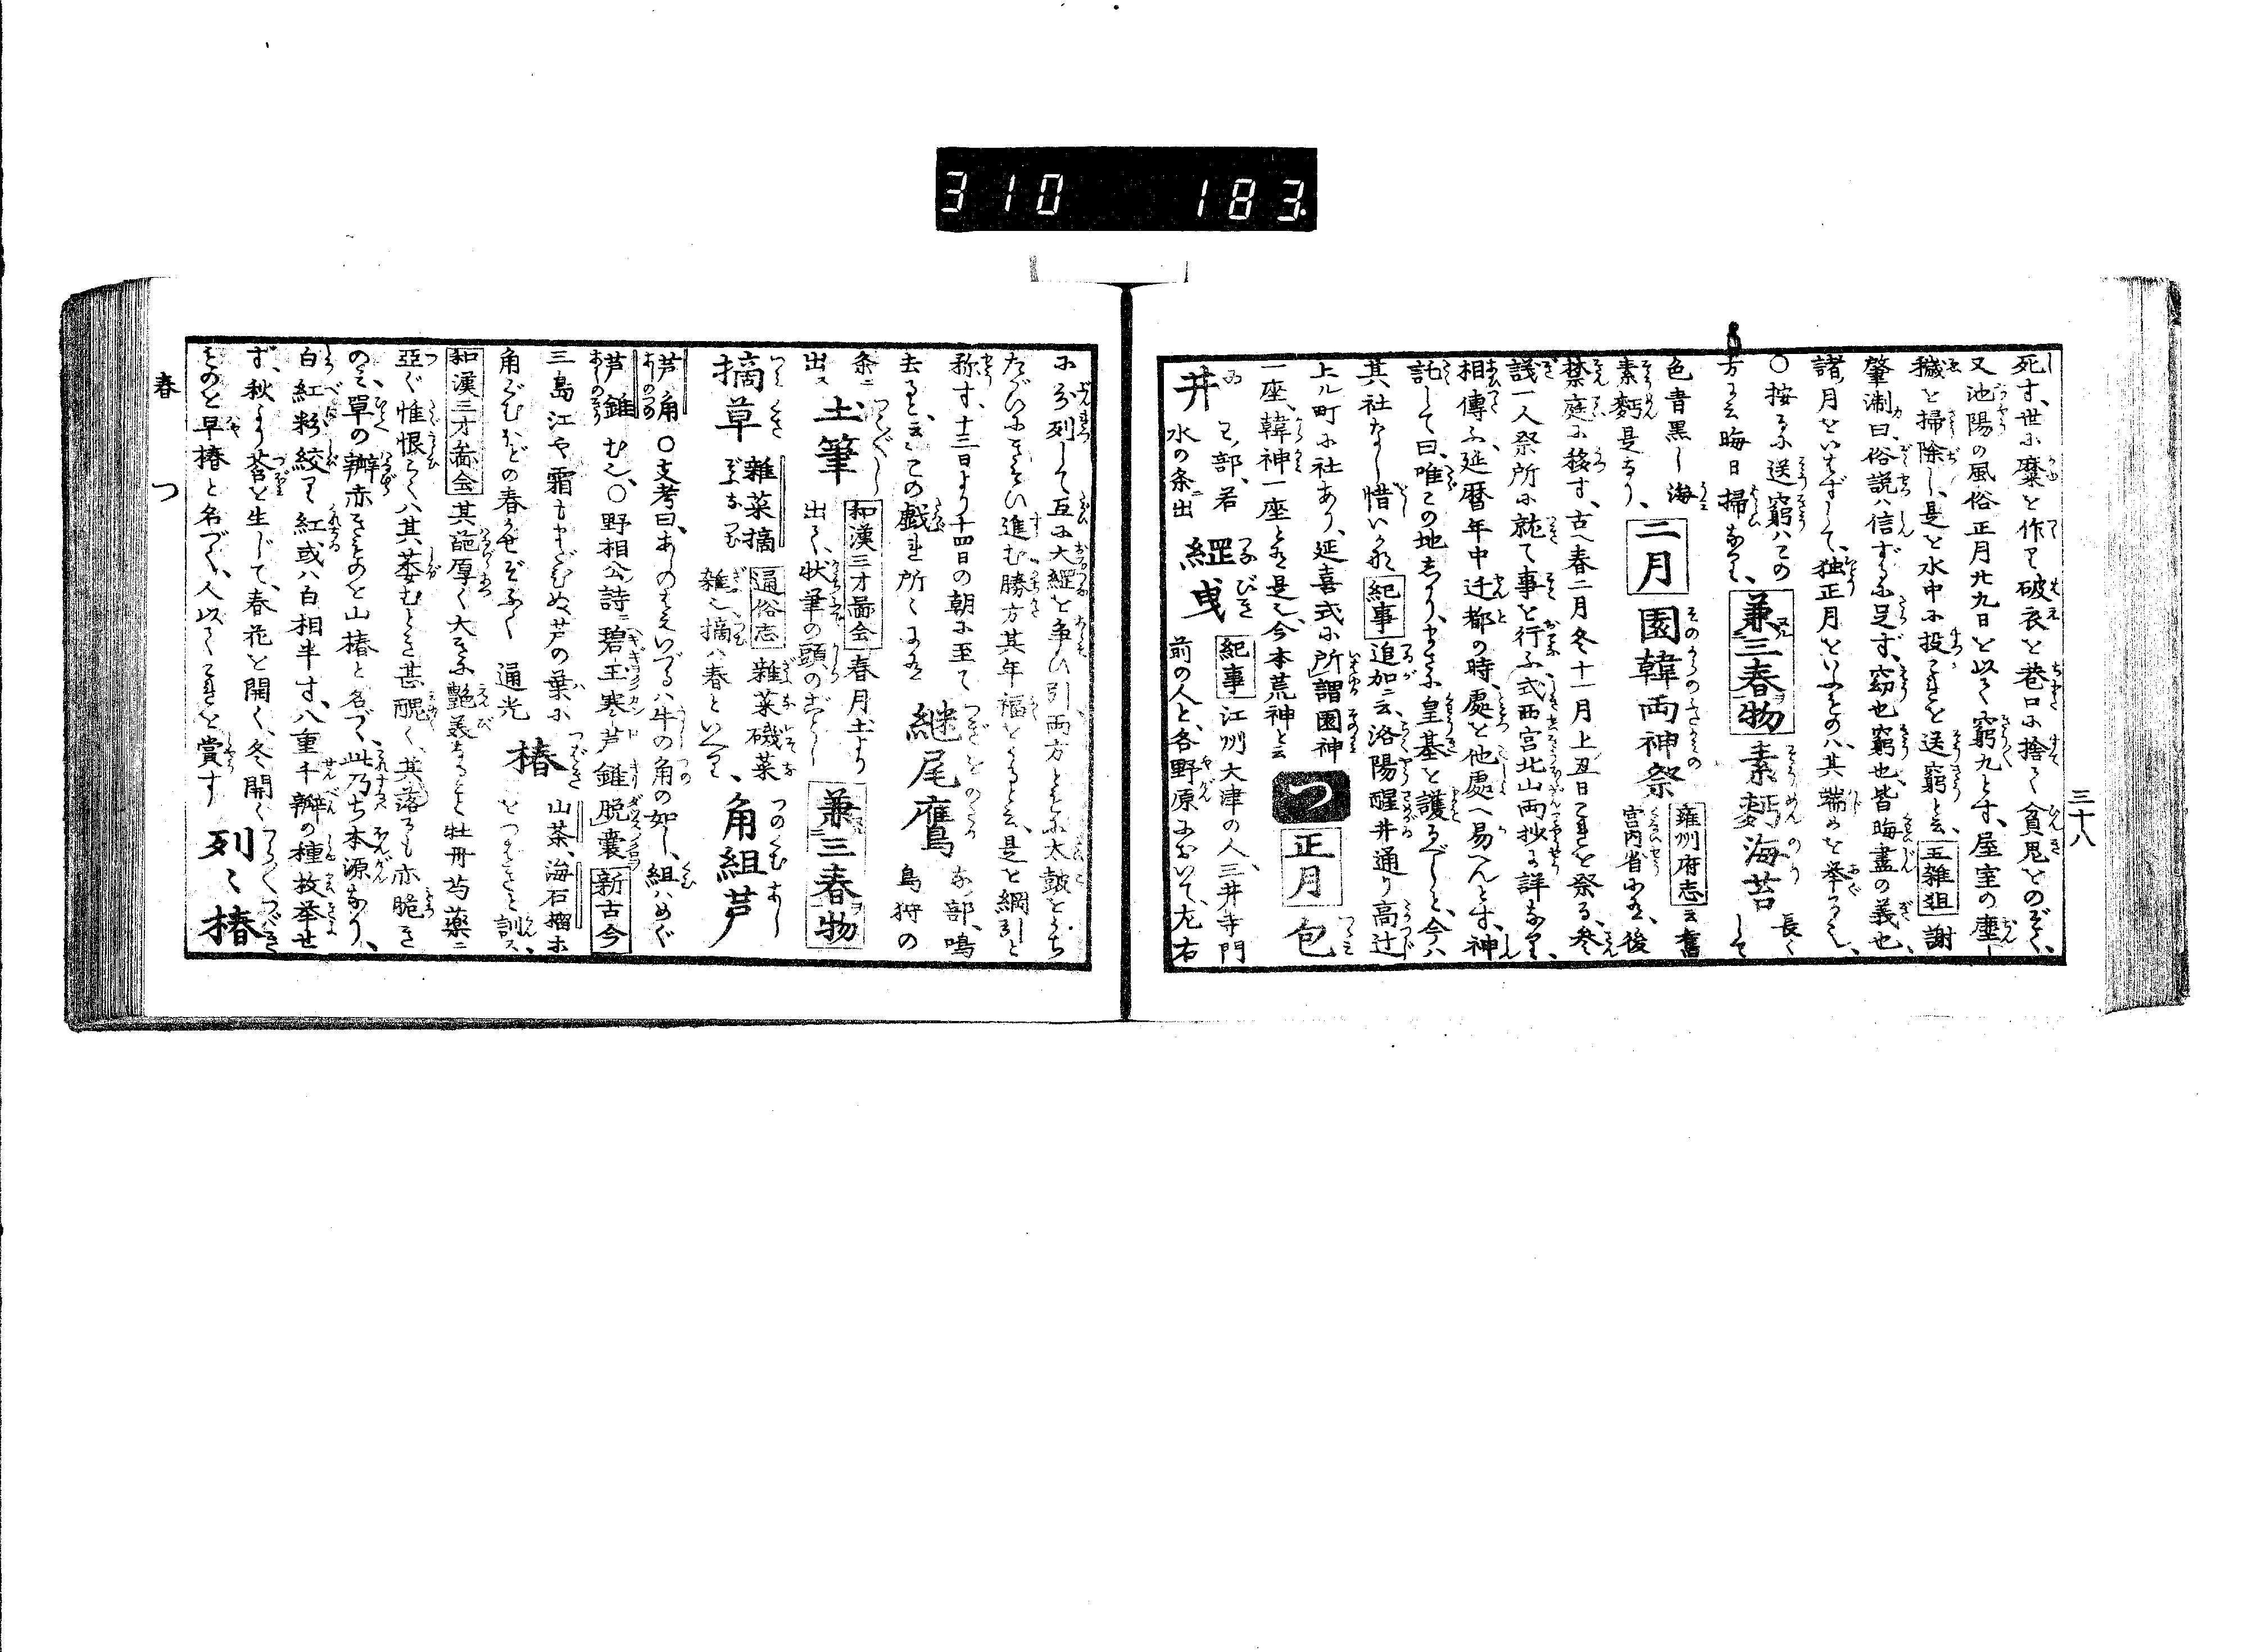 310 183
三十八
死す、世に糜を作り破衣を巷口に捨て貧鬼をのぞく、
又池陽の風俗正月廿九日を以て窮九とす、屋室の塵
穢を掃除し、是を水中に投てこれを送窮と云、五雑俎謝
肇淛曰、俗説ハ信ずるに足ず、窈也窮也、皆晦盡の義也、
諸月をいはずして、独正月をいふものハ、其端めを挙るなり、
〇按るに送窮ハこの
方に云晦日掃なり、
兼三春物
素麪海苔
長く
して
色青黒し海
素麪是なり、
二月
園韓両神祭
雍州府志云舊
宮内省に有、後
禁庭に移す、古へ春二月冬十一月上丑日これを祭る、参
議一人祭所に就て事を行ふ式西宮北山両抄に詳なり、
相傳ふ、延暦年中迁都の時、處を他處へ易へんとす、神
託して曰、唯この地にあり、まさに皇基を護るべしと、今ハ
其社なし惜いかな紀事追加ニ云、洛陽醒井通り高辻
上ル町に社あり、延喜式に所謂園神
一座、韓神一座とは是也、今本荒神と云
つ
正月
包
井
ワ部、若
水の条ニ出
縄曳
紀事江州大津の人、三井寺門
前の人と、各野原において、左右
に分列して互に大縄を争ひ引両方ともに太鼓をうち
たがひにきそひ進む勝方其年福をうると云、是を綱引と
称す、十三日より十四日の朝に至て
去ると、云この戯れ所〻にあり
継尾鷹
な部、鳴
鳥狩の
条ニ
出ス
土筆
和漢三才圖会春月土より
出て、状筆の頭のごとし
兼三春物
摘草
雑菜摘
通俗志雑菜磯菜
雑也、摘ハ春といへり、
角組芦
芦角
〇支考曰、あしのもえいづるハ牛の角の如し、組ハめぐ
芦錐
む也、〇野相公詩ニ碧玉寒芦錐脱嚢新古今
三島江や霜もまだひぬ芦の葉に
角ぐむほどの春かぜぞふく 通光
椿
山茶、海石榴ホ
をつばきと訓ス、
和漢三才圖会其葩厚く大きに艶美なること牡丹芍薬ニ
亞ぐ惟恨らくハ其萎むとき甚醜く、其落るも亦脆き
のミ、單の瓣赤きものを山椿と名づく、此乃ち本源なり、
白紅粉絞り紅或ハ白相半す、八重千瓣の種枚挙せ
ず、秋より莟を生じて、春花を開く、冬開く
ものを早椿と名づく、人以てこれを賞す
列〻椿
春
つ